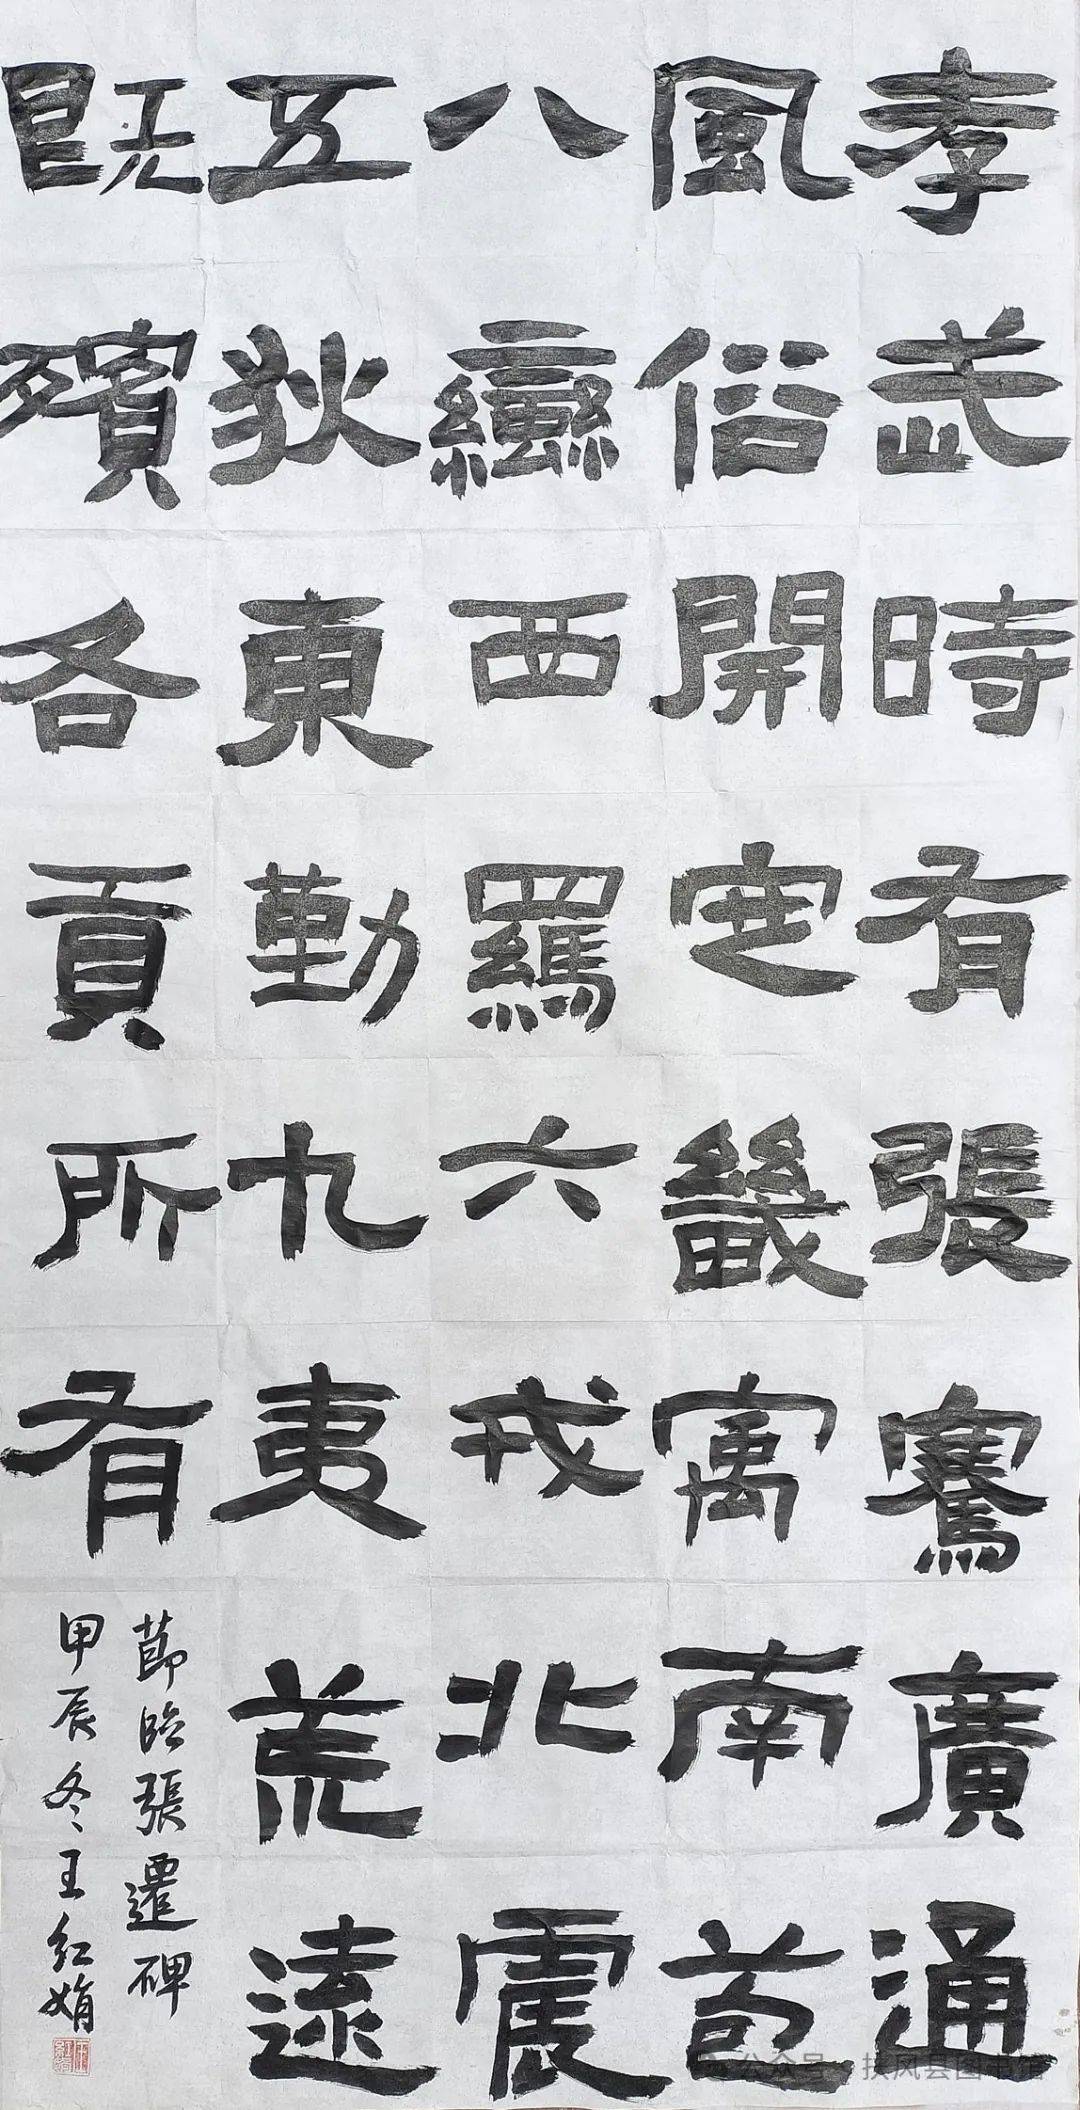 孝武時有張騫廣通
風俗開定畿寓南苞
八蠻西羈六戎北震
五狄東勤九夷荒遠
既殯各貢所有
節臨張遷碑
甲辰冬王紅娟
公众号·扶风县图书馆